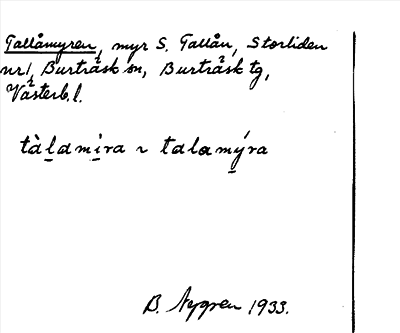 Tallåmyren, myr S. Tallån, Storliden
nr 1, Burträsk sn, Burträsk tg,
Västerb. l.
tàlamira ~ talamýra
B. Nygren 1933.